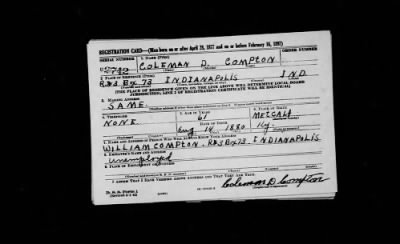 REGISTRATION CARD—(Men born on or after April 28, 1877 and on or before February 16, 1897)
SERIAL NUMBER 1. NAME (Print) ORDER NUMBER
U COLEMAN D. COMPTON
2. PLACE OF RESIDENCE (Print)
R#3 Bx 73 INDIANAPOLIS IND
[THE PLACE OF RESIDENCE GIVEN ON THE LINE ABOVE WILL DETERMINE LOCAL BOARD
JURISDICTION; LINE 2 OF REGISTRATION CERTIFICATE WILL BE IDENTICAL]
3. MAILING ADDRESS
SAME.
4. TELEPHONE 5. AGE IN YEARS 6. PLACE OF BIRTH
NONE 61 METCALF
DATE OF BIRTH
Aug 14 1880 Ky.
7. NAME AND ADDRESS OF PERSON WHO WILL ALWAYS KNOW YOUR ADDRESS
WILLIAM COMPTON. R#3 Bx 73. INDIANAPOLIS
8. EMPLOYER'S NAME AND ADDRESS
Unemployed
I AFFIRM THAT I HAVE VERIFIED ABOVE ANSWERS AND THAT THEY ARE TRUE.
D. S. S. Form 1
Coleman D Compton